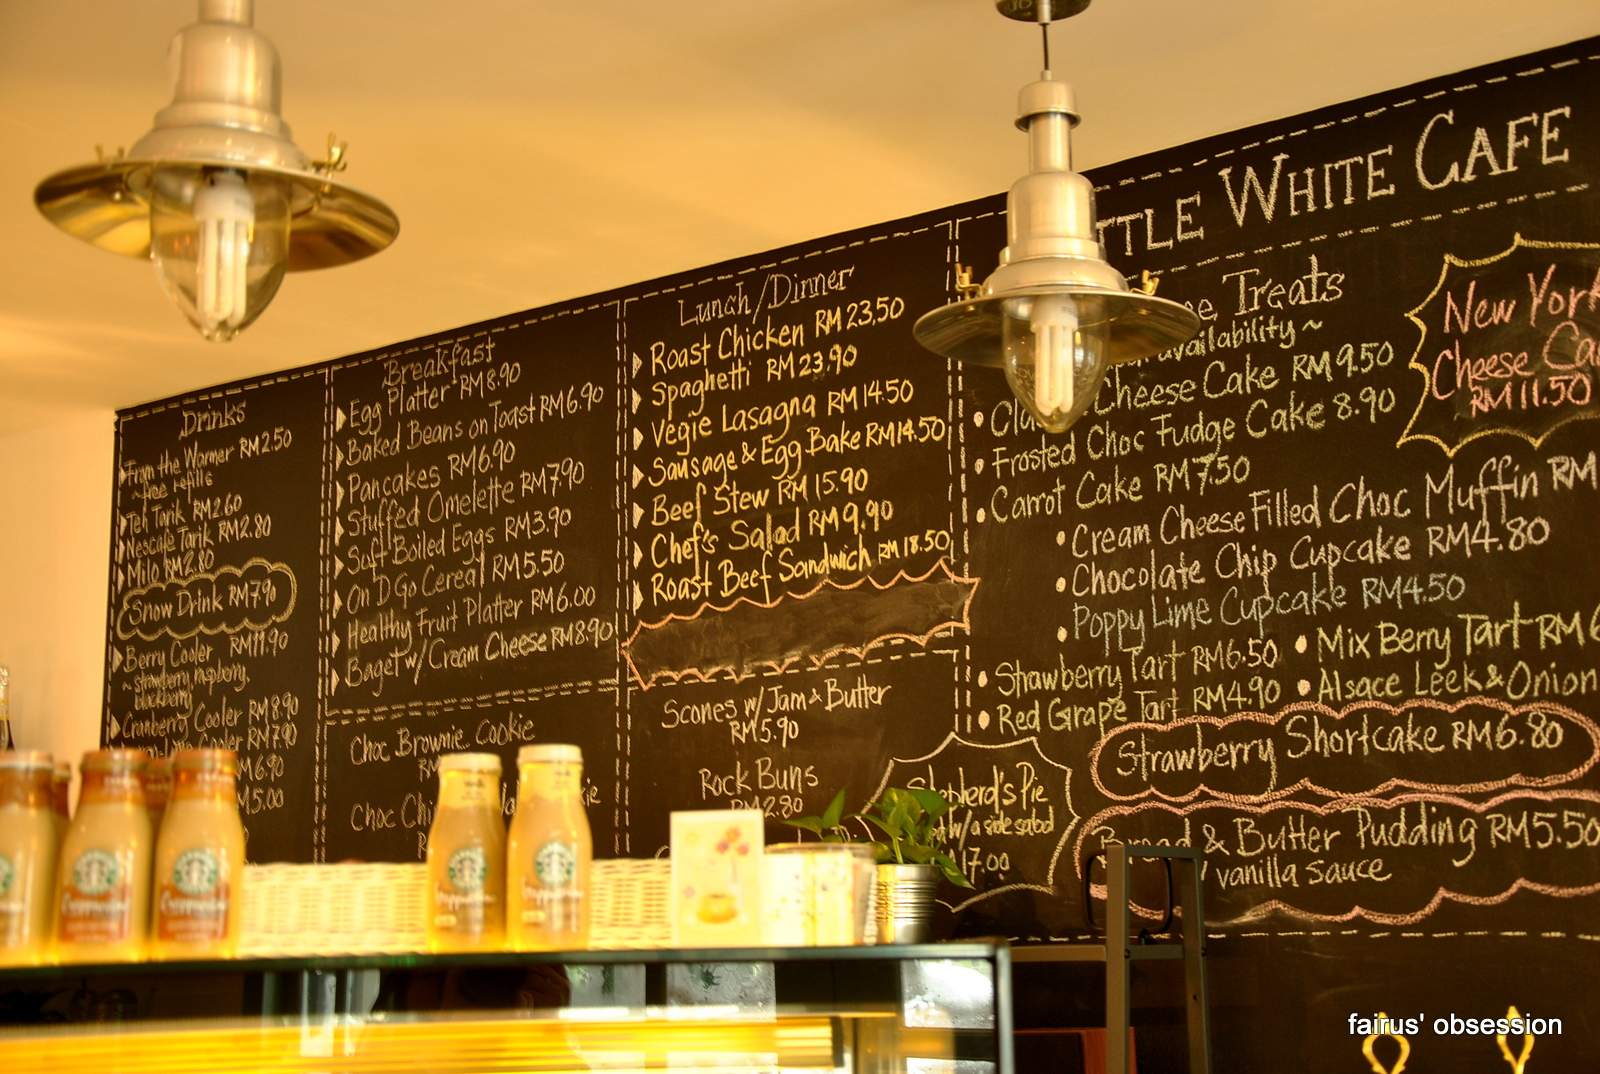 Drinks
From the Warmer RM2.50
~free refills
Teh Tarik RM2.60
Nescafe Tarik RM2.80
Milo RM2.80
Snow Drink RM7.90
Berry Cooler RM11.90
~ strawberry, raspberry,
blackberry
Cranberry Cooler RM8.90
Cooler RM7.90
RM6.90
RM5.00
Breakfast
Egg Platter RM8.90
Baked Beans on Toast RM6.90
Pancakes RM6.90
Stuffed Omelette RM7.90
Soft Boiled Eggs RM3.90
On D Go Cereal RM5.50
Healthy Fruit Platter RM6.00
Bagel w/ Cream Cheese RM8.90
Choc Brownie Cookie
RM
Choc
Lunch/Dinner
Roast Chicken RM23.50
Spaghetti RM23.90
Vegie Lasagna RM14.50
Sausage & Egg Bake RM14.50
Beef Stew RM15.90
Chef's Salad RM9.90
Roast Beef Sandwich RM18.50
Scones w/ Jam & Butter
RM5.90
Rock Buns
RM2.80
Shepherd's Pie
w/ a side salad
17.00
TTLE WHITE CAFE
Treats
availability~
Cheese Cake RM9.50
Frosted Choc Fudge Cake 8.90
Carrot Cake RM7.50
Cream Cheese Filled Choc Muffin RM
Chocolate Chip Cupcake RM4.80
Poppy Lime Cupcake RM4.50
Strawberry Tart RM6.50
Mix Berry Tart RM6
Red Grape Tart RM4.90
Alsace Leek & Onion
Strawberry Shortcake RM6.80
Bread & Butter Pudding RM5.50
w/ vanilla sauce
New York
Cheese Ca
RM11.50
fairus' obsession